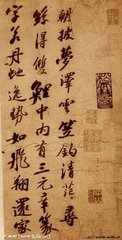 朝披夢澤雲笠釣清茫〻尋
絲得雙鯉中內有三元章篆
字若丹蛇逸勢如飛翔還家